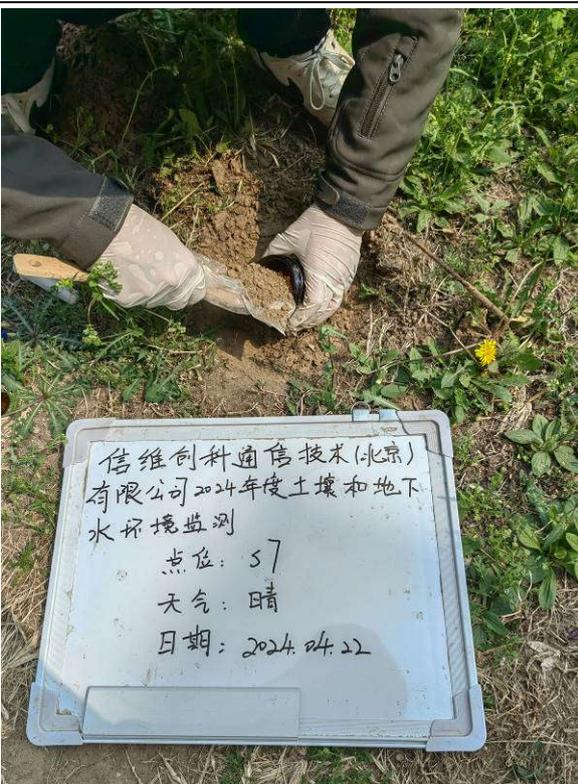 信维创科通信技术(北京)
有限公司2024年度土壤和地下
水环境监测
点位：S7
天气：晴
日期：2024.04.22